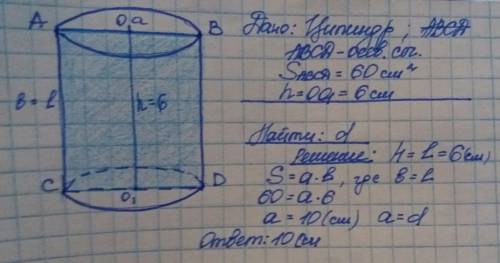 A O a B
в = l
h=6
C O₁ D
Дано: Цилиндр ;
ABCD - осев. сеч.
SABCD = 60 см²
h = OO₁ = 6 см
Найти: d
Решение: h = L = 6(см)
S = a·в, где в = l
60 = a·6
a = 10 (см) a = d
Ответ: 10 см